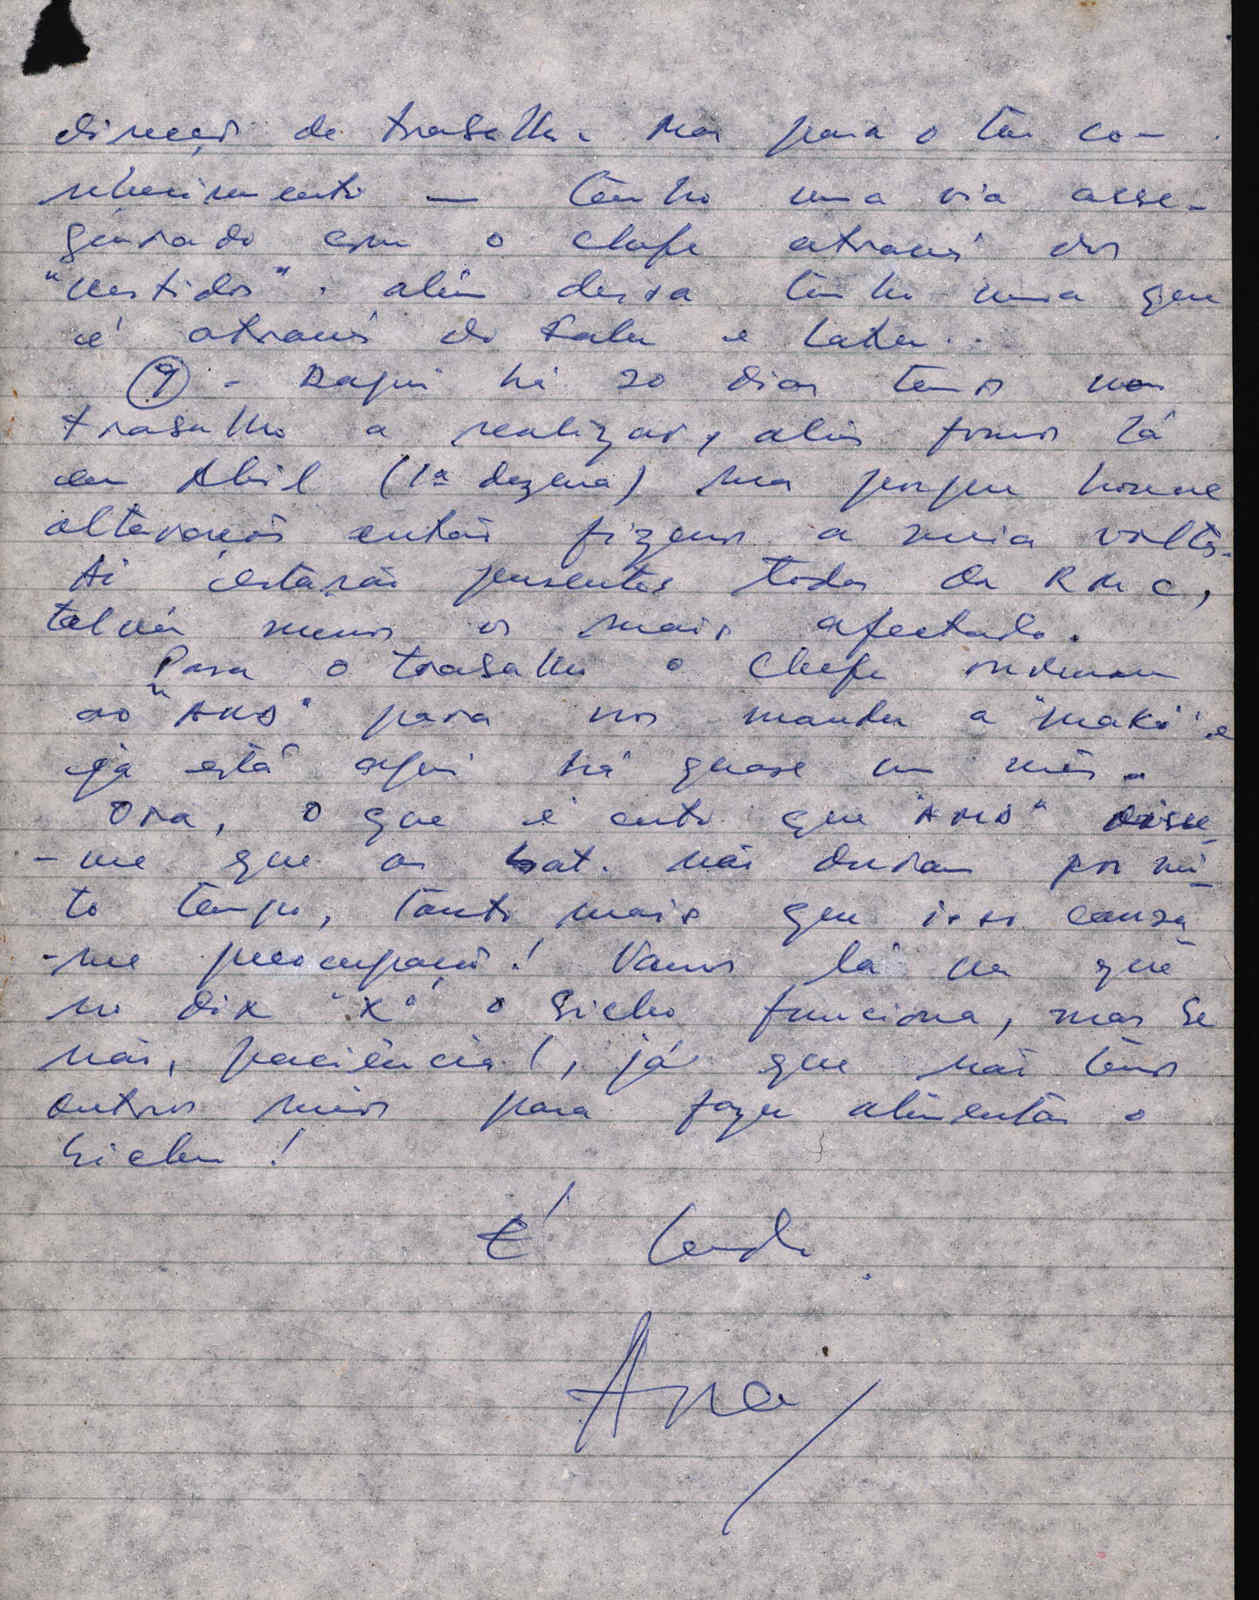 direcção de trabalho. Mas para o teu co-
nhecimento — tenho uma via asse-
gurado com o chefe através dos
"vestidos". além dessa tenho uma que
é através do e
⑨ - Daqui há 20 dias temos um
trabalho a realizar, aliás fomos lá
em Abril (1ª dezena) mas porque houve
alterações então fizemos a meia volta.
Aí estarão presentes todos da RMC,
talvez menos os mais afectado.
Para o trabalho o Chefe ordenou
ao "AMO" para nos mandar a "maki" e
já está aqui há quase um mês.
Ora, o que é certo que "AMO" disse-
-me que as bat. não duram por mui-
to tempo, tanto mais que isso causa-
-me preocupação! Vamos lá ver que
no dia "X" o bicho funciona, mas se
não, paciência!, já que não temos
outros meios para fazer alimentar o
bicho!
É tudo.
Ana